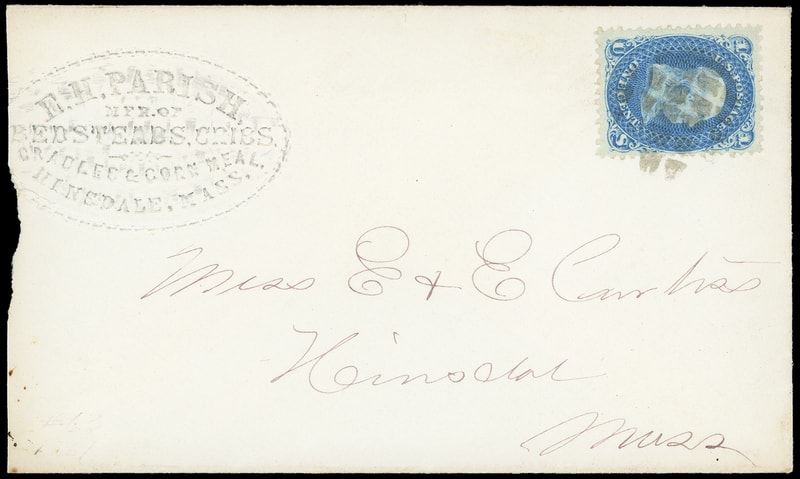 E.H. PARISH,
MFR. OF
BEDSTEADS, CRIBS,
CRADLES & CORN MEAL,
HINSDALE, MASS.
U.S. POSTAGE
ONE CENT
U 1 S
Miss E & E Curtiss
Hinsdal
Mass